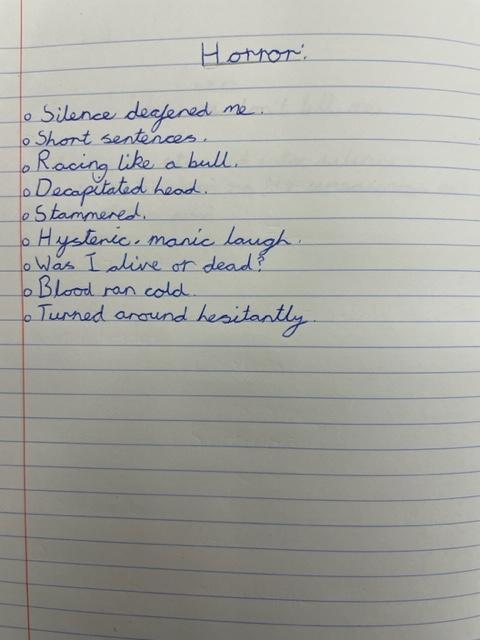 Horror:
o Silence deafened me.
o Short sentences.
o Racing like a bull.
o Decapitated head.
o Stammered.
o Hysteric, manic laugh.
o Was I alive or dead?
o Blood ran cold.
o Turned around hesitantly.